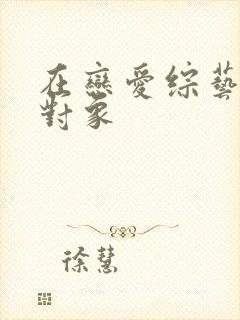 在戀愛綜藝
對象
徐慧